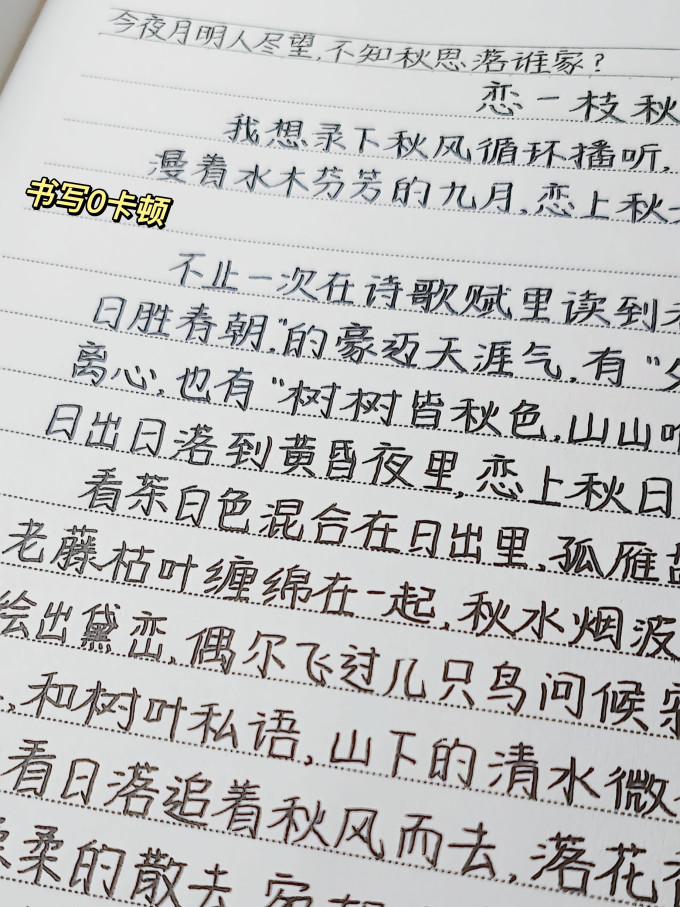 今夜月明人尽望，不知秋思落谁家？
恋一枝秋
我想录下秋风循环播听，
漫着水木芬芳的九月，恋上秋
书写0卡顿
不止一次在诗歌赋里读到
日胜春朝。"的豪迈天涯气，有"
离心，也有"树树皆秋色，山山
日出日落到黄昏夜里，恋上秋日
看茶白色混合在日出里，孤雁
老藤枯叶缠绵在一起，秋水烟波
绘出黛峦，偶尔飞过几只鸟问候
，和树叶私语，山下的清水微
看日落追着秋风而去，落花
柔的散去